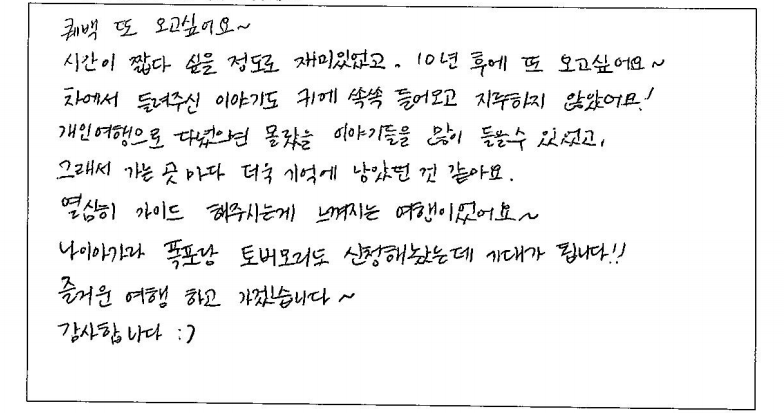 퀘백 또 오고싶어요~
시간이 짧다 싶을 정도로 재미있었고, 10년 후에 또 오고싶어요~
차에서 들려주신 이야기도 귀에 쏙쏙 들어오고 지루하지 않았어요!
개인여행으로 다녔으면 몰랐을 이야기들을 많이 들을수 있었고,
그래서 가는 곳 마다 더욱 기억에 남았던 것 같아요.
열심히 가이드 해주시는게 느껴지는 여행이었어요~
나이아가라 폭포랑 토버모리도 신청해놨는데 기대가 됩니다!!
즐거운 여행 하고 가겠습니다~
감사합니다 :)